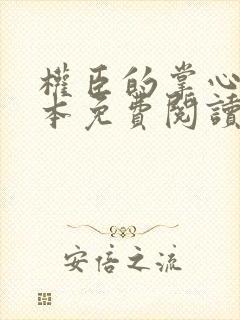 權臣的掌心
本免費閱讀
安信之流